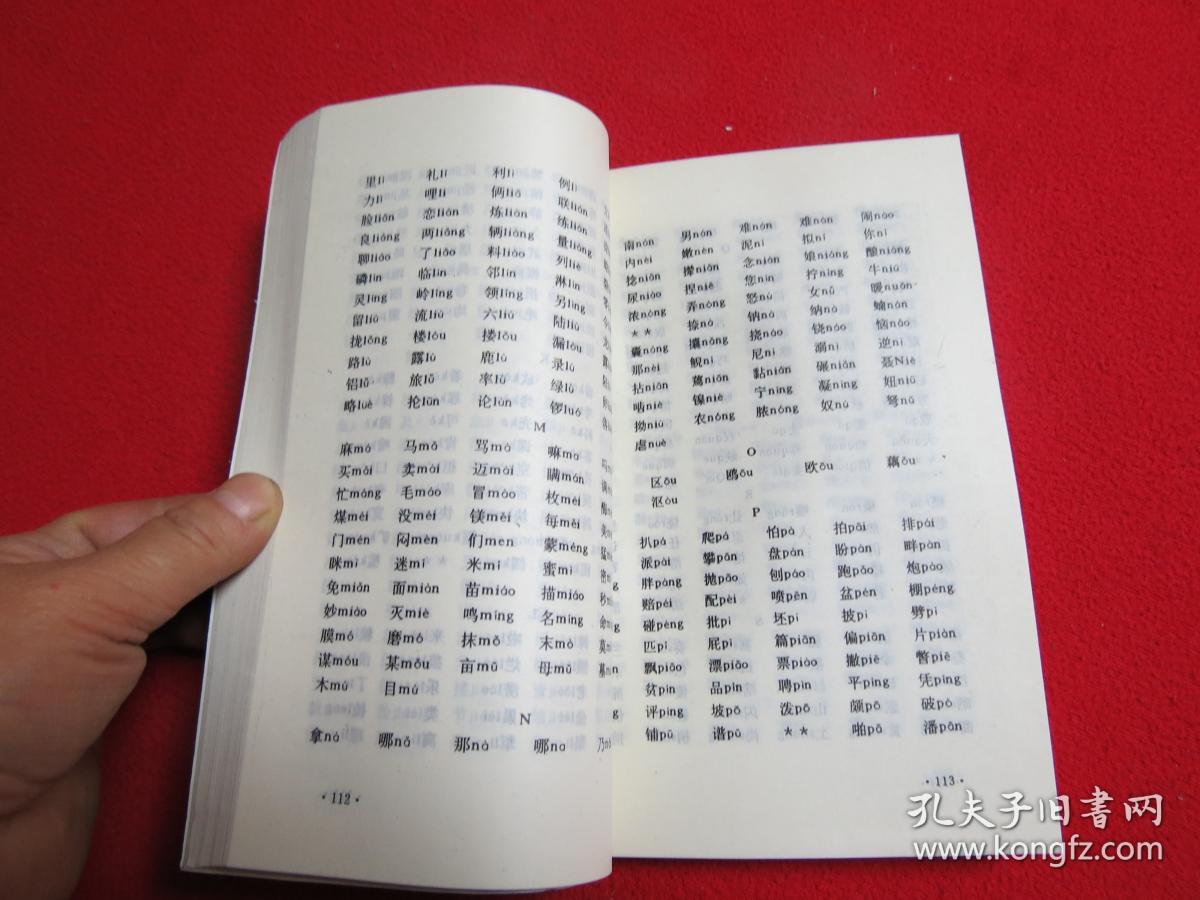 里lǐ 礼lǐ 利lì 例lì
力lì 哩li 俩liǎ 联lián
脸liǎn 恋liàn 炼liàn 练liàn
良liáng 两liǎng 辆liàng 量liàng
聊liáo 了liǎo 料liào 列liè
磷lín 临lín 邻lín 淋lín
灵líng 岭lǐng 领lǐng 另lìng
留liú 流liú 六liù 陆liù
拢lǒng 楼lóu 搂lǒu 漏lòu
路lù 露lù 鹿lù 录lù
铝lǚ 旅lǚ 率lǜ 绿lǜ
略lüè 抡lūn 论lùn 锣luó
M
麻má 马mǎ 骂mà 嘛ma
买mǎi 卖mài 迈mài 瞒mán
忙máng 毛máo 冒mào 枚méi
煤méi 没méi 镁měi 每měi
门mén 闷mèn 们men 蒙méng
眯mī 迷mí 米mǐ 蜜mì
免miǎn 面miàn 苗miáo 描miáo
妙miào 灭miè 鸣míng 名míng
膜mó 磨mó 抹mǒ 末mò
谋móu 某mǒu 亩mǔ 母mǔ
木mù 目mù
N
拿ná 哪nǎ 那nà 哪na 乃
·112·
南nán 男nán 难nán 难nàn 闹nào
内nèi 嫩nèn 泥ní 拟nǐ 你nǐ
捻niǎn 撵niǎn 念niàn 娘niáng 酿niàng
尿niào 捏niē 您nín 拧nǐng 牛niú
浓nóng 弄nòng 怒nù 女nǚ 暖nuǎn
★★ 捺nà 钠nà 纳nà 蝻nǎn
囊náng 攮nǎng 挠náo 铙náo 恼nǎo
那nèi 鲵ní 尼ní 溺nì 逆nì
拈niān 蔫niān 黏nián 碾niǎn 聂Niè
啮niè 镍niè 宁níng 凝níng 妞niū
拗niù 农nóng 脓nóng 奴nú 弩nǔ
虐nüè
O
区ōu 鸥ōu 欧ōu 藕ǒu
沤òu
P
扒pá 爬pá 怕pà 拍pāi 排pái
派pài 攀pān 盘pán 盼pàn 畔pàn
胖pàng 抛pāo 刨páo 跑pǎo 炮pào
赔péi 配pèi 喷pēn 盆pén 棚péng
碰pèng 批pī 坯pī 披pī 劈pī
匹pǐ 屁pì 篇piān 偏piān 片piàn
飘piāo 漂piāo 票piào 撇piē 瞥piē
贫pín 品pǐn 聘pìn 平píng 凭píng
评píng 坡pō 泼pō 颇pō 破pò
铺pū 谱pǔ ★★ 啪pā 潘pān
·113·
孔夫子旧书网
www.kongfz.com